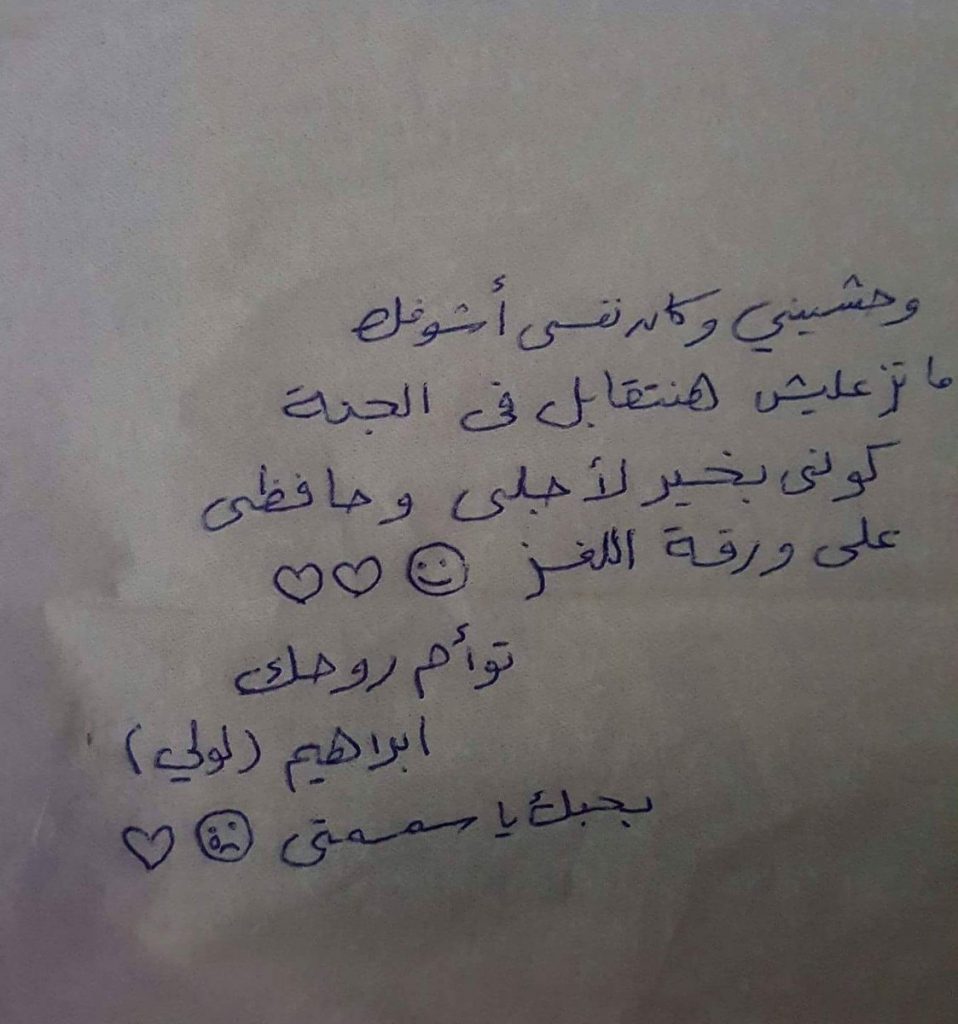 وحشيني وكان نفسى أشوفك
ماتزعليش هنتقابل فى الجنة
كونى بخير لأجلى وحافظى
على ورقة اللغز
توأم روحك
ابراهيم (لولي)
بحبك يا سمسمتى